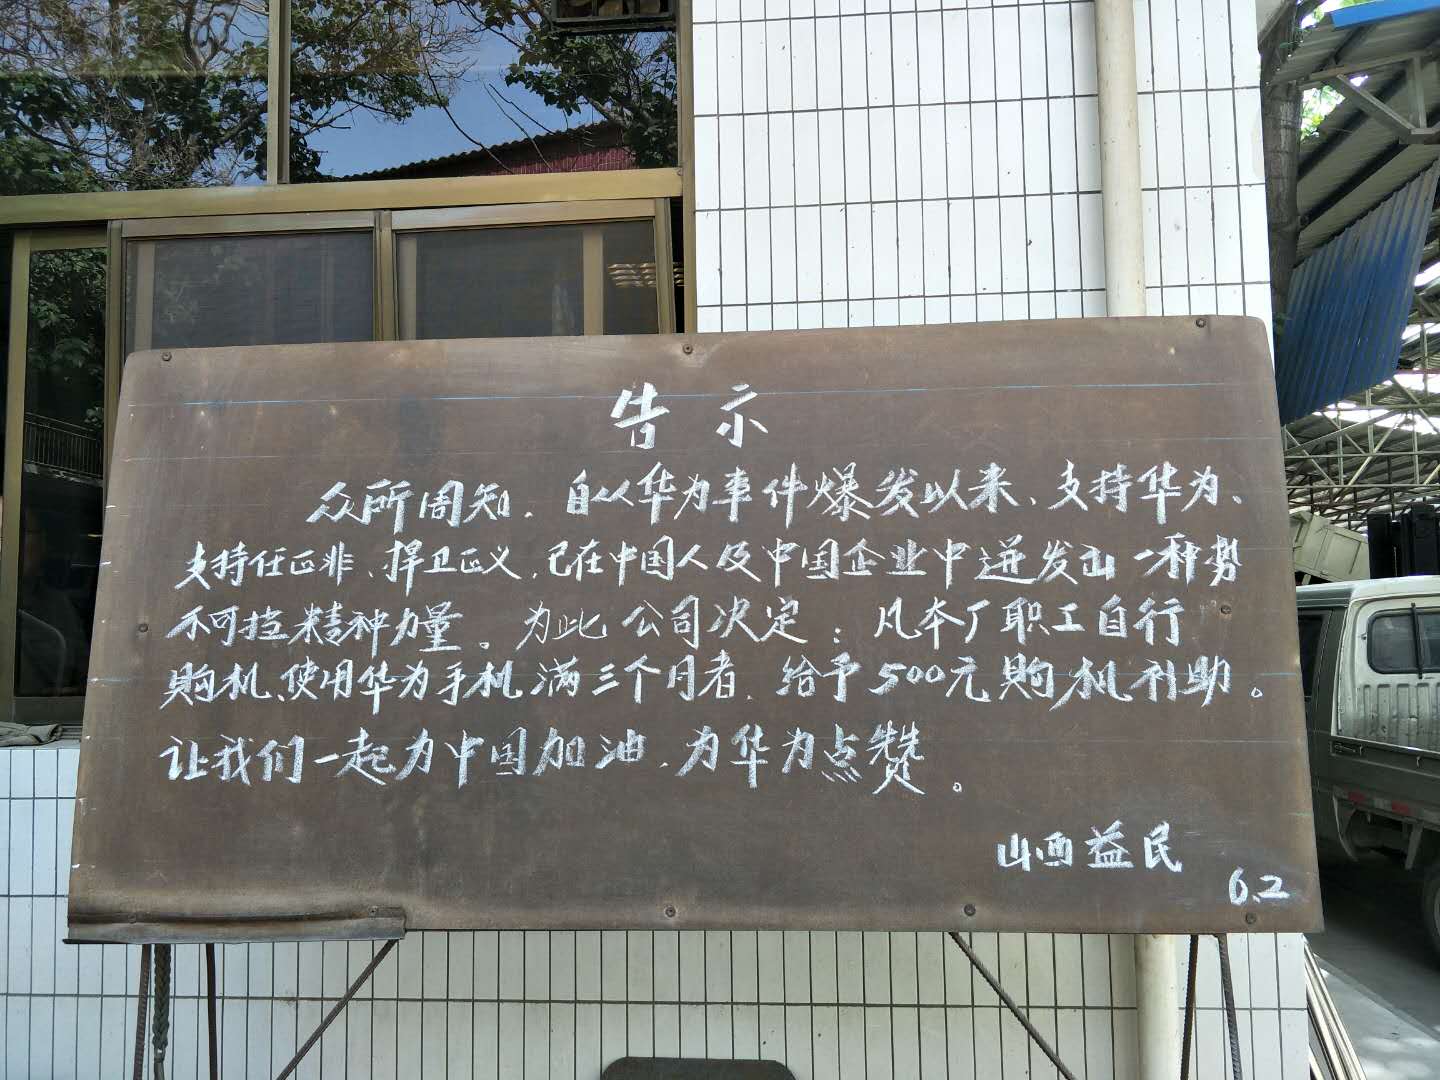 告示
众所周知.自从华为事件爆发以来、支持华为、
支持任正非、捍卫正义.已在中国人及中国企业中迸发出一种势
不可挡精神力量。为此公司决定：凡本厂职工自行
购机、使用华为手机满三个月者.给予500元购机补助。
让我们一起为中国加油.为华为点赞。
山西益民
6.2